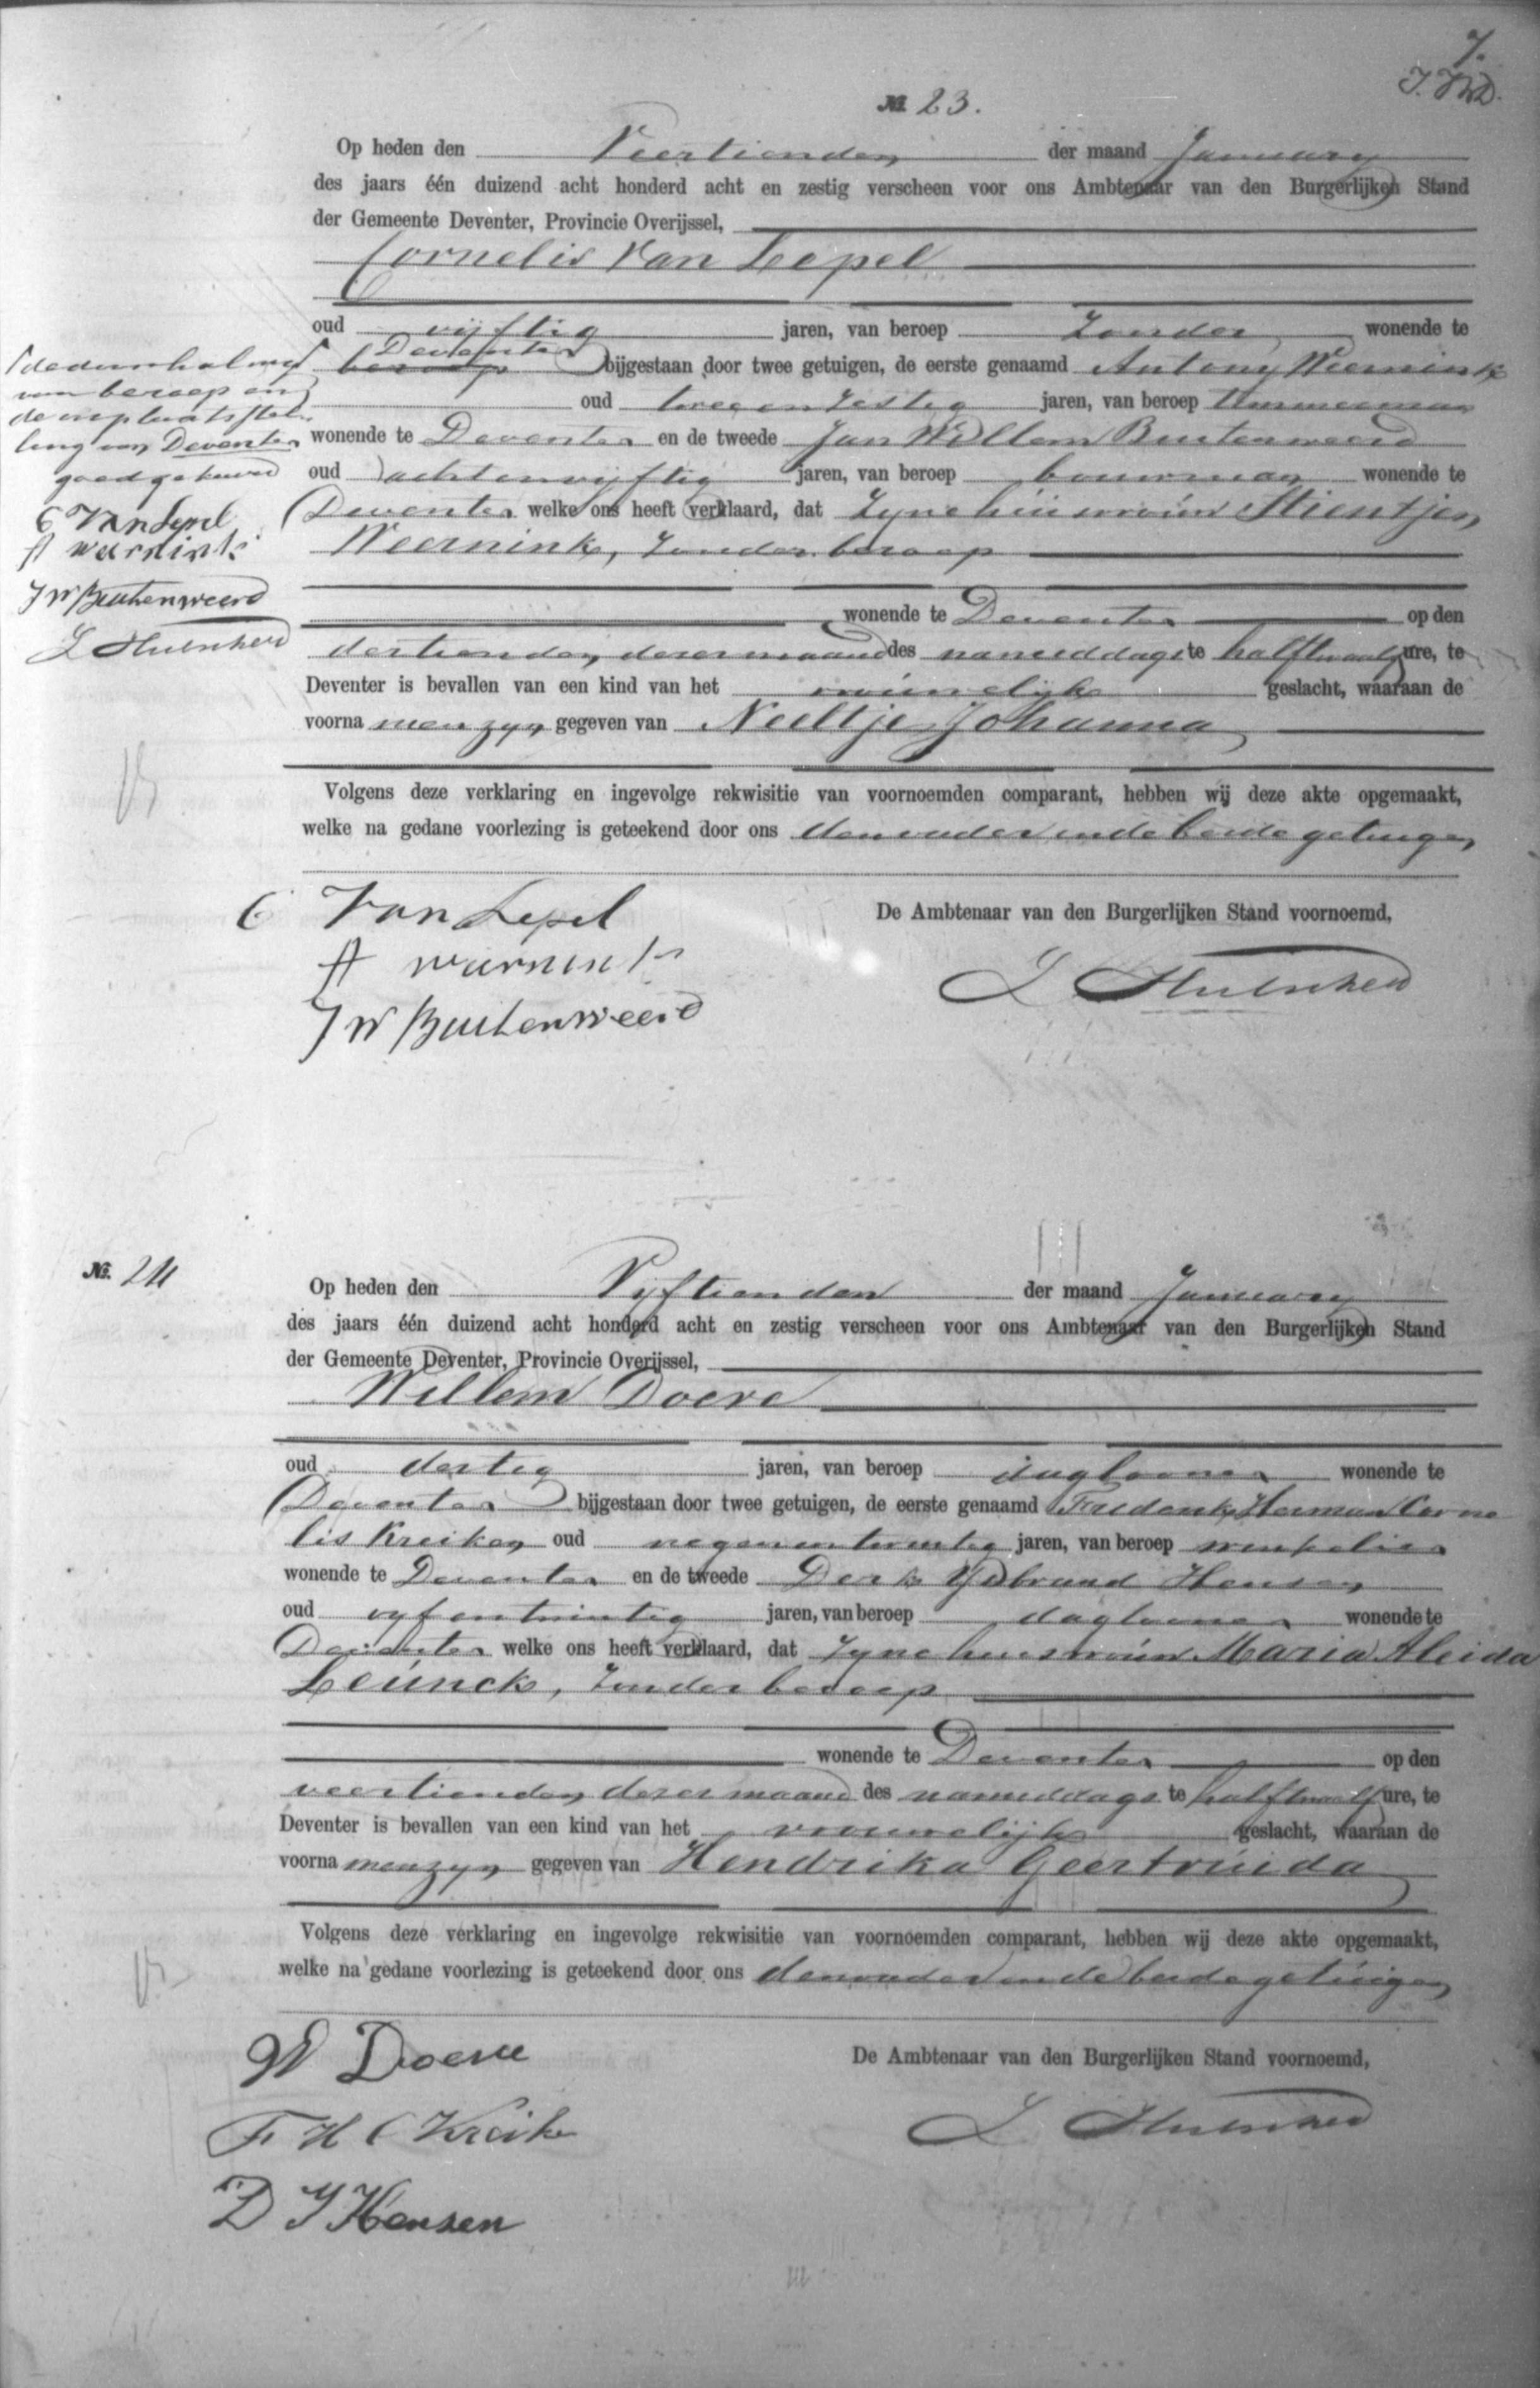 7.
№ 23.
Op heden den Veertienden der maand January
des jaars één duizend acht honderd acht en zestig verscheen voor ons Ambtenaar van den Burgerlijken Stand
der Gemeente Deventer, Provincie Overijssel,
Cornelis Van Lepel
oud vijftig jaren, van beroep Zonder wonende te
beroep Deventer bijgestaan door twee getuigen, de eerste genaamd Antony Weernink
oud twee en Zestig jaren, van beroep timmerman
wonende te Deventer en de tweede Jan Willem Buitenweerd
oud achtenvijftig jaren, van beroep bouwman wonende te
Deventer welke ons heeft verklaard, dat Zyne huisvrouw Stientjen
Weernink, Zonder beroep
wonende te Deventer op den
dertienden dezer maand des namiddags te half twaalf ure, te
Deventer is bevallen van een kind van het vrouwelijk geslacht, waaraan de
voorna men zyn gegeven van Neeltje Johanna
Volgens deze verklaring en ingevolge rekwisitie van voornoemden comparant, hebben wij deze akte opgemaakt,
welke na gedane voorlezing is geteekend door ons den vader en de beide getuigen
de doorhaling
van beroep en
de inplaatsstel
ling van Deventer
goedgekeurd
C Van Lepel
A weernink
J W Buitenweerd
C Van Lepel
A weernink
J W Buitenweerd
De Ambtenaar van den Burgerlijken Stand voornoemd,
№. 24
Op heden den Vyftienden der maand January
des jaars één duizend acht honderd acht en zestig verscheen voor ons Ambtenaar van den Burgerlijken Stand
der Gemeente Deventer, Provincie Overijssel,
Willem Doeve
oud dertig jaren, van beroep daglooner wonende te
Deventer bijgestaan door twee getuigen, de eerste genaamd Frederik Herman Corne
lis Kreiken oud negenentwintig jaren, van beroep winkelier
wonende te Deventer en de tweede Derk IJsbrand Hensen
oud vyfentwintig jaren, van beroep daglooner wonende te
Deventer welke ons heeft verklaard, dat Zyne huisvrouw Maria Aleida
Leunck, Zonder beroep
wonende te Deventer op den
veertienden dezer maand des namiddags te half twaalf ure, te
Deventer is bevallen van een kind van het vrouwelijk geslacht, waaraan de
voorna men zyn gegeven van Hendrika Geertruida
Volgens deze verklaring en ingevolge rekwisitie van voornoemden comparant, hebben wij deze akte opgemaakt,
welke na gedane voorlezing is geteekend door ons den vader en de beide getuigen
W Doeve
F H C Kreike
D Y Hensen
De Ambtenaar van den Burgerlijken Stand voornoemd,